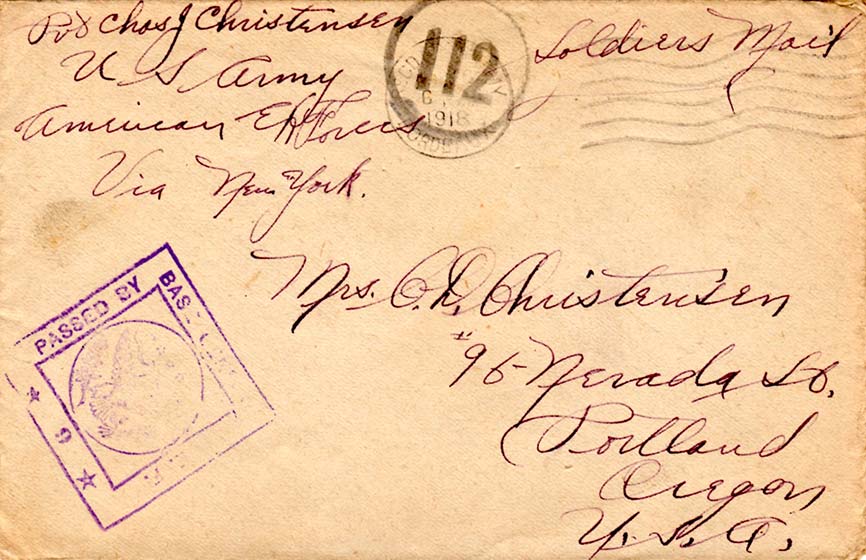 Pvt Chas J Christensen
U S Army
American Ex Forces
Via New York.
Soldiers Mail
112
1918
Mrs. C. Christensen
#95 Nevada St.
Portland
Oregon
U. S. A.
PASSED BY BASE
9